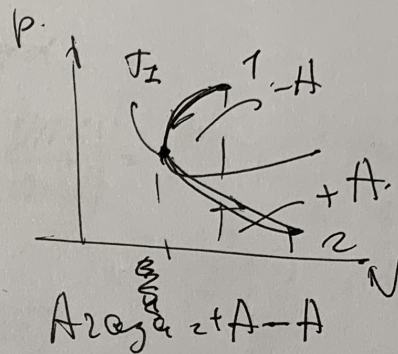 P.
T1 1 -A
+A.
2
V
Aгаза = +A - A